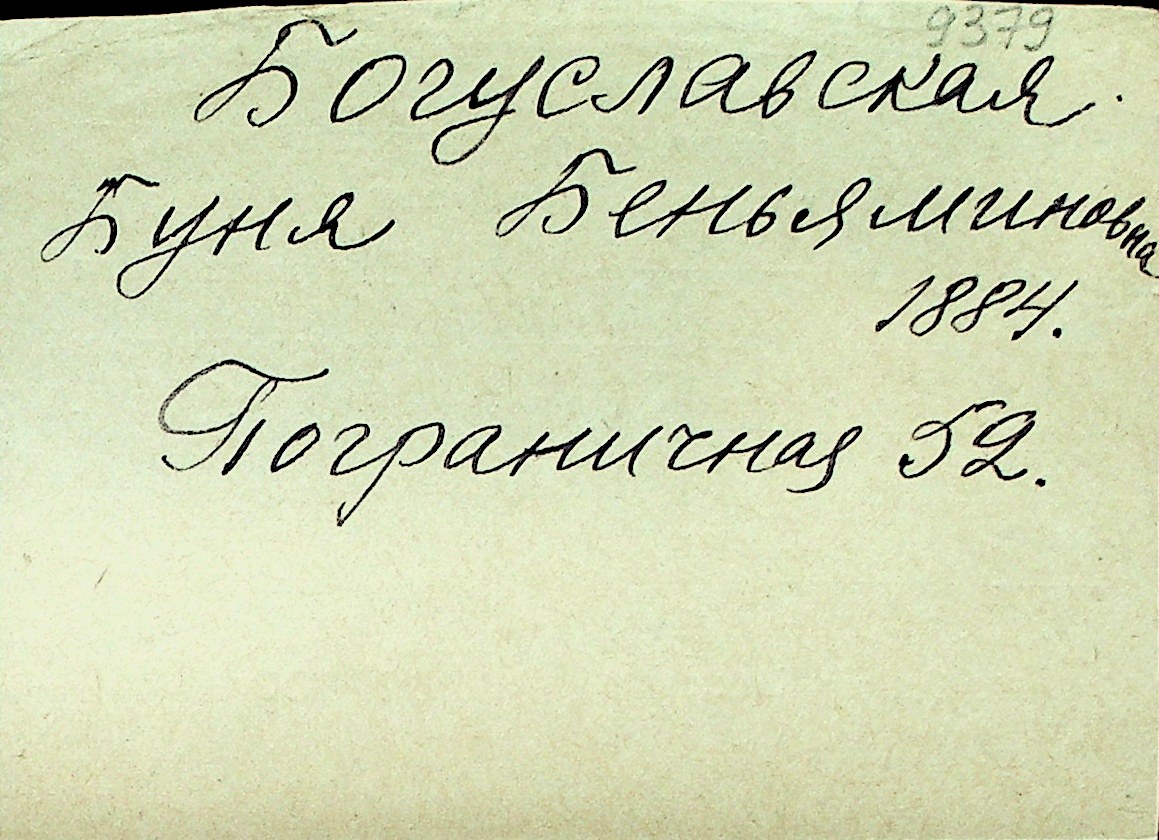 9379
Богуславская.
Буня Беньяминовна
1884.
Пограничная 52.